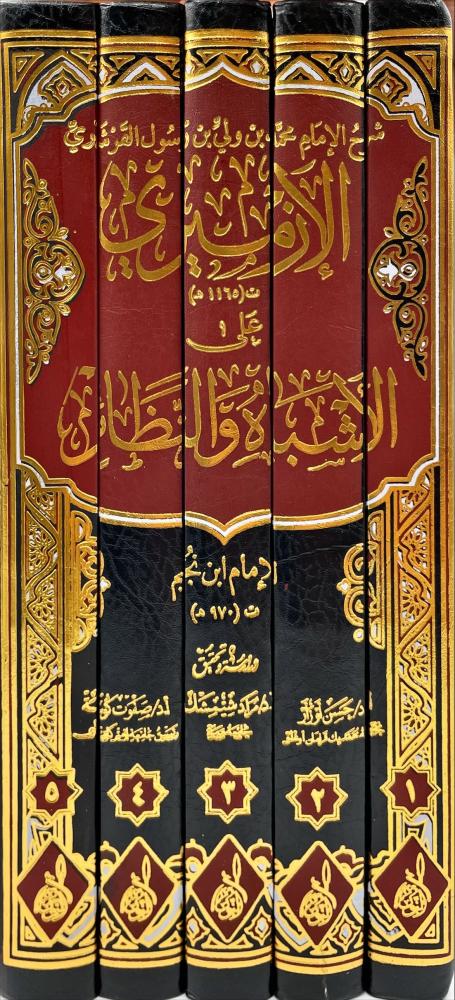 شرح الإمام محمد بن ولي بن رسول القرشهري
الإزميري
ت (١١٦٥ هـ)
على
الأشباه والنظائر
الإمام ابن نجيم
ت (٩٧٠ هـ)
دراسة وتحقيق
أ.د/حسن أوزار
أ.د/مراد شمشك
أ.د/صفوت كوسا
١
٢
٣
٤
٥